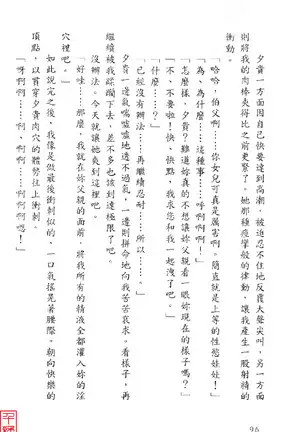 夕貴一方面因自己快要達到高潮，被迫忍不住地反覆大聲尖叫，另一方面
則將我的肉棒夾得比之前更緊了。她那種痙攣般的律動，讓我產生一股射精的
衝動。
「哈哈，伯父啊！妳女兒可真是厲害啊。簡直就是上等的性慾娃娃！」
「為、為什麼……這種事……呼啊啊！」
「怎麼樣，夕貴？難道妳真的不想讓妳父親看一眼妳現在的樣子嗎？」
「不、不要啦！快、快點，我求您和我一起洩了吧。」
「什麼……？」
「已經沒有辦法……再繼續忍耐……所以……」
夕貴一邊氣喘噓噓地透不過氣，一邊則拼命地向我苦苦哀求。看樣子，再
繼續被我蹂躪下去，差不多也該到達極限了吧。
沒辦法。今天就讓她爽到這裡吧。
「好哇……那麼，我就在妳父親的面前，將我所有的精液全都灌入妳的淫
穴裡吧。」
如此說完之後，我像是做最後衝刺似的，一口氣搖晃著腰際。朝向快樂的
頂點，以貫穿夕貴肉穴的體勢往上衝刺。
「呀啊啊……啊、啊啊……啊啊啊嗯！」
96